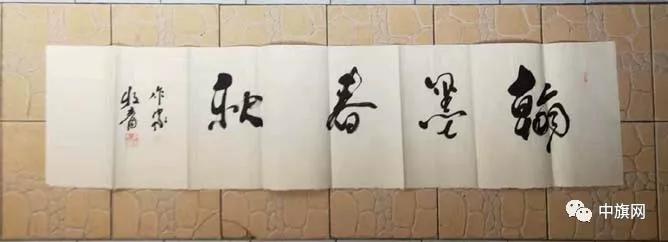 翰墨春秋
作家
牧青
中旗网